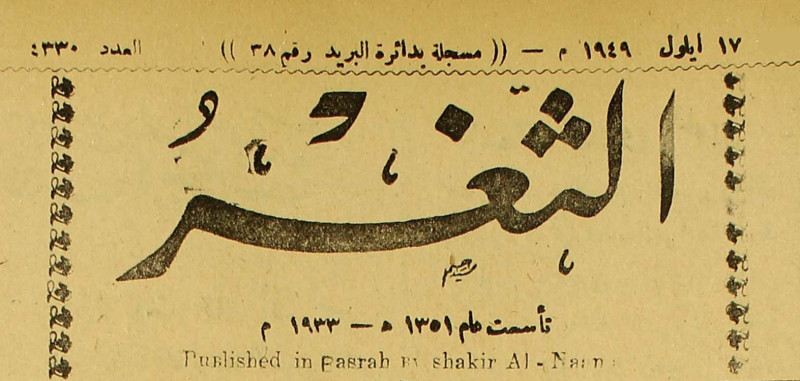 ١٧ ايلول ١٩٤٩ م — (( مسجلة بدائرة البريد رقم ٣٨ )) العدد ٤٣٣٠
الثغر
تأسست عام ١٣٥١ ه — ١٩٣٣ م
Published in Basrah By shakir Al -